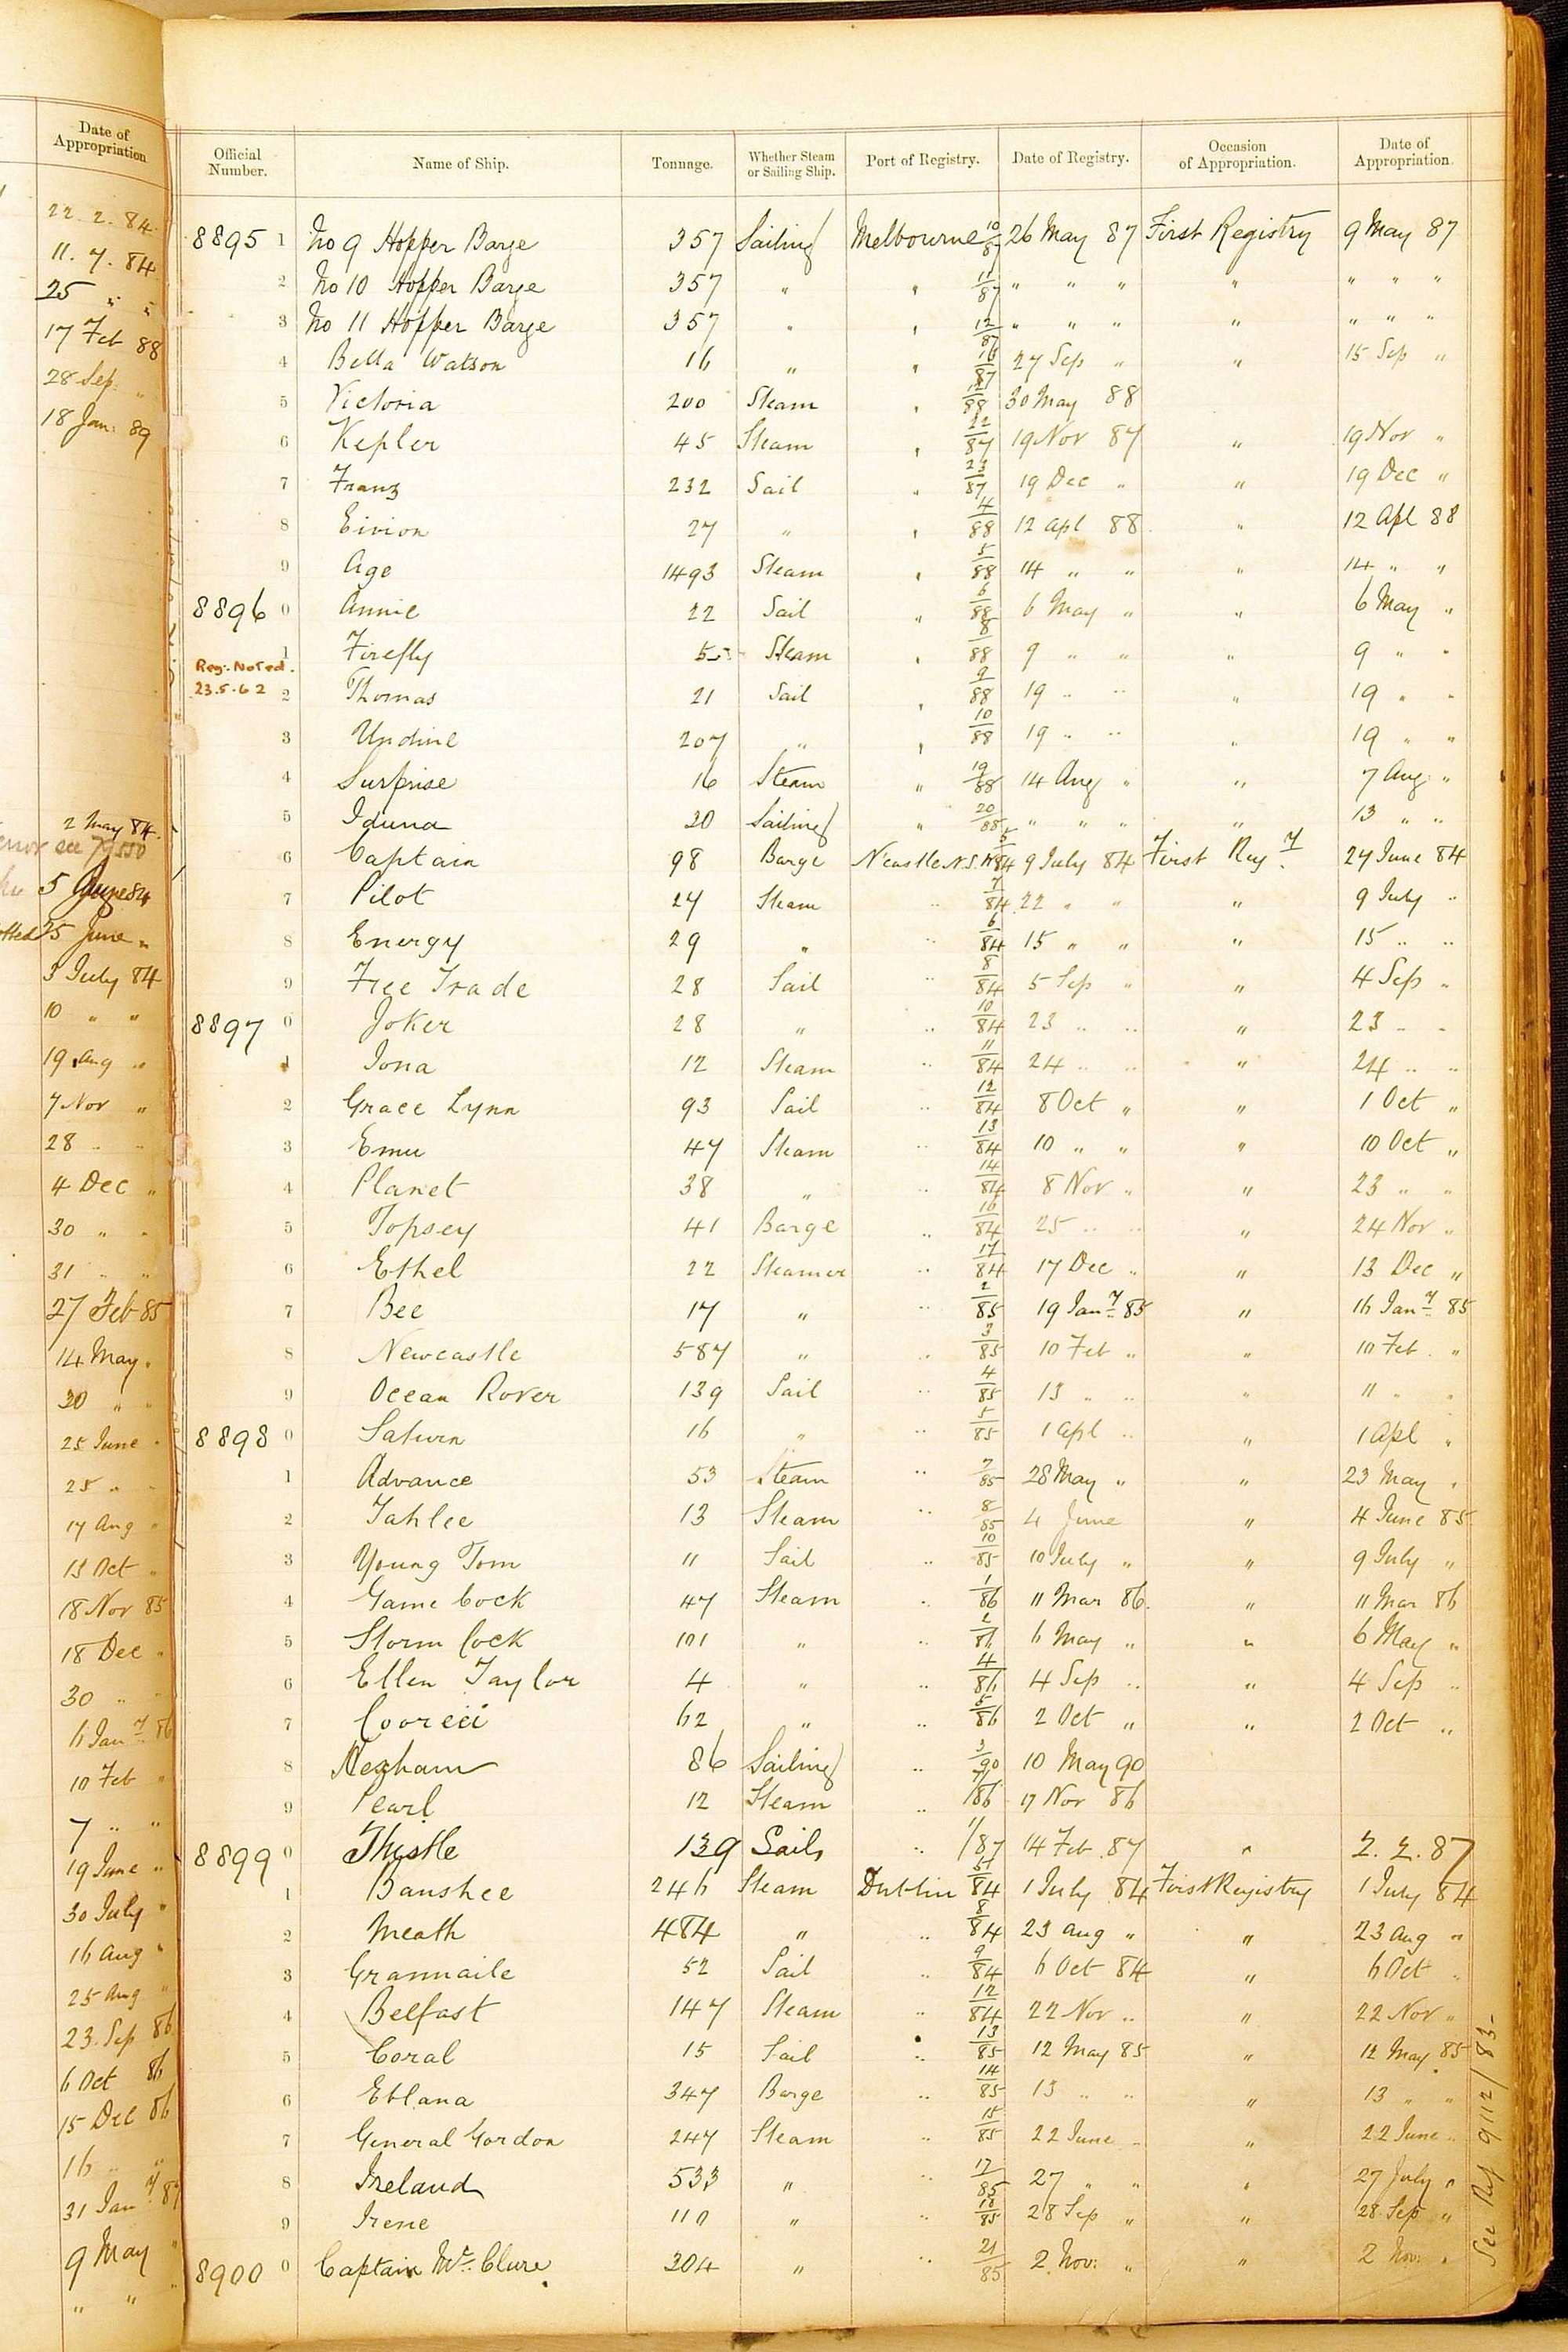 Date of Appropriation
22. 2. 84.
11. 7. 84
25 " "
17 Feb 88
28 Sep. "
18 Jan: 89
2 May 84.
5 June 84
25 June "
3 July 84
10 " "
19 Aug "
7 Nov "
28 " "
4 Dec "
30 " "
31 " "
27 Feb 85
14 May "
30 " "
25 June "
25 " "
17 Aug "
13 Oct "
18 Nov 85
18 Dec "
30 " "
6 Jany 86
10 Feb "
7 " "
19 June "
30 July "
16 Aug "
25 Aug "
23. Sep 86
6 Oct 86
15 Dec 86
16 " "
31 Jany 87
9 May "
" "
Official Number. Name of Ship. Tonnage. Whether Steam or Sailing Ship. Port of Registry. Date of Registry. Occasion of Appropriation. Date of Appropriation.
8895 1 No 9 Hopper Barge 357 Sailing Melbourne 10/87 26 May 87 First Registry 9 May 87
2 No 10 Hopper Barge 357 " " 11/87 " " " " " " "
3 No 11 Hopper Barge 357 " " 12/87 " " " " " " "
4 Bella Watson 16 " " 16/87 27 Sep " " 15 Sep "
5 Victoria 200 Steam " 12/88 30 May 88
6 Kepler 45 Steam " 22/87 19 Nov 87 " 19 Nov "
7 Franz 232 Sail " 23/87 19 Dec " " 19 Dec "
8 Eivion 27 " " 4/88 12 Apl 88 " 12 Apl 88
9 Age 1493 Steam " 5/88 14 " " " 14 " "
8896 0 Annie 22 Sail " 6/88 6 May " " 6 May "
1 Firefly 5 Steam " 8/88 9 " " " 9 " "
Reg. Noted. 23.5.62
2 Thomas 21 Sail " 9/88 19 " " " 19 " "
3 Undine 207 " " 10/88 19 " " " 19 " "
4 Surprise 16 Steam " 19/88 14 Aug " " 7 Aug "
5 Iduna 20 Sailing " 20/88 " " " " 13 " "
6 Captain 98 Barge N'castle N.S.W 5/84 9 July 84 First Regy. 27 June 84
7 Pilot 24 Steam " 7/84 22 " " " 9 July "
8 Energy 29 " " 6/84 15 " " " 15 " "
9 Free Trade 28 Sail " 8/84 5 Sep " " 4 Sep "
8897 0 Joker 28 " " 10/84 23 " " " 23 " "
1 Iona 12 Steam " 11/84 24 " " " 24 " "
2 Grace Lynn 93 Sail " 12/84 8 Oct " " 1 Oct "
3 Emu 47 Steam " 13/84 10 " " " 10 Oct "
4 Planet 38 " " 14/84 8 Nov " " 23 " "
5 Topsey 41 Barge " 16/84 25 " " " 24 Nov "
6 Ethel 22 Steamer " 17/84 17 Dec " " 13 Dec "
7 Bee 17 " " 2/85 19 Jany 85 " 16 Jany 85
8 Newcastle 587 " " 3/85 10 Feb " " 10 Feb. "
9 Ocean Rover 139 Sail " 4/85 13 " " " 11 " "
8898 0 Saturn 16 " " 5/85 1 Apl " " 1 Apl "
1 Advance 53 Steam " 7/85 28 May " " 23 May "
2 Tahlee 13 Steam " 8/85 4 June " 4 June 85
3 Young Tom 11 Sail " 10/85 10 July " " 9 July "
4 Game Cock 47 Steam " 1/86 11 Mar 86. " 11 Mar 86
5 Storm Cock 101 " " 2/86 6 May " " 6 May "
6 Ellen Taylor 4 " " 4/86 4 Sep " " 4 Sep "
7 Cooreei 62 " " 5/86 2 Oct " " 2 Oct "
8 Hexham 86 Sailing " 3/90 10 May 90
9 Pearl 12 Steam " 7/86 17 Nov 86
8899 0 Thistle 139 Sail " 1/87 14 Feb. 87 " 2. 2. 87
1 Banshee 246 Steam Dublin 5/84 1 July 84 First Registry 1 July 84
2 Meath 484 " " 8/84 23 Aug " " 23 Aug "
3 Grannaile 52 Sail " 9/84 6 Oct 84 " 6 Oct "
4 Belfast 147 Steam " 12/84 22 Nov " " 22 Nov "
5 Coral 15 Sail " 13/85 12 May 85 " 12 May 85
6 Eblana 347 Barge " 14/85 13 " " " 13 " "
7 General Gordon 247 Steam " 15/85 22 June " " 22 June "
8 Ireland 533 " " 17/85 27 " " " 27 July "
9 Irene 110 " " 18/85 28 Sep " " 28 Sep "
8900 0 Captain Mc Clure 304 " " 21/85 2 Nov: " " 2 Nov: "